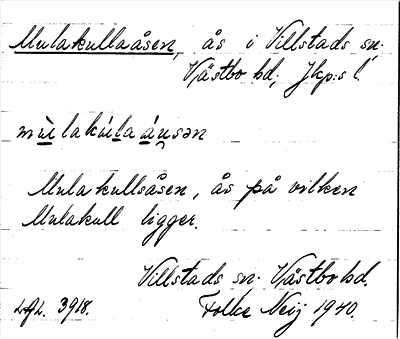 Mulakullaåsen, ås i Villstads sn.
Västbo hd, Jkp:s l.
Mulakullsåsen, ås på vilken
Mulakull ligger.
Villstads sn. Västbo hd.
3918. Folke Neij 1940.